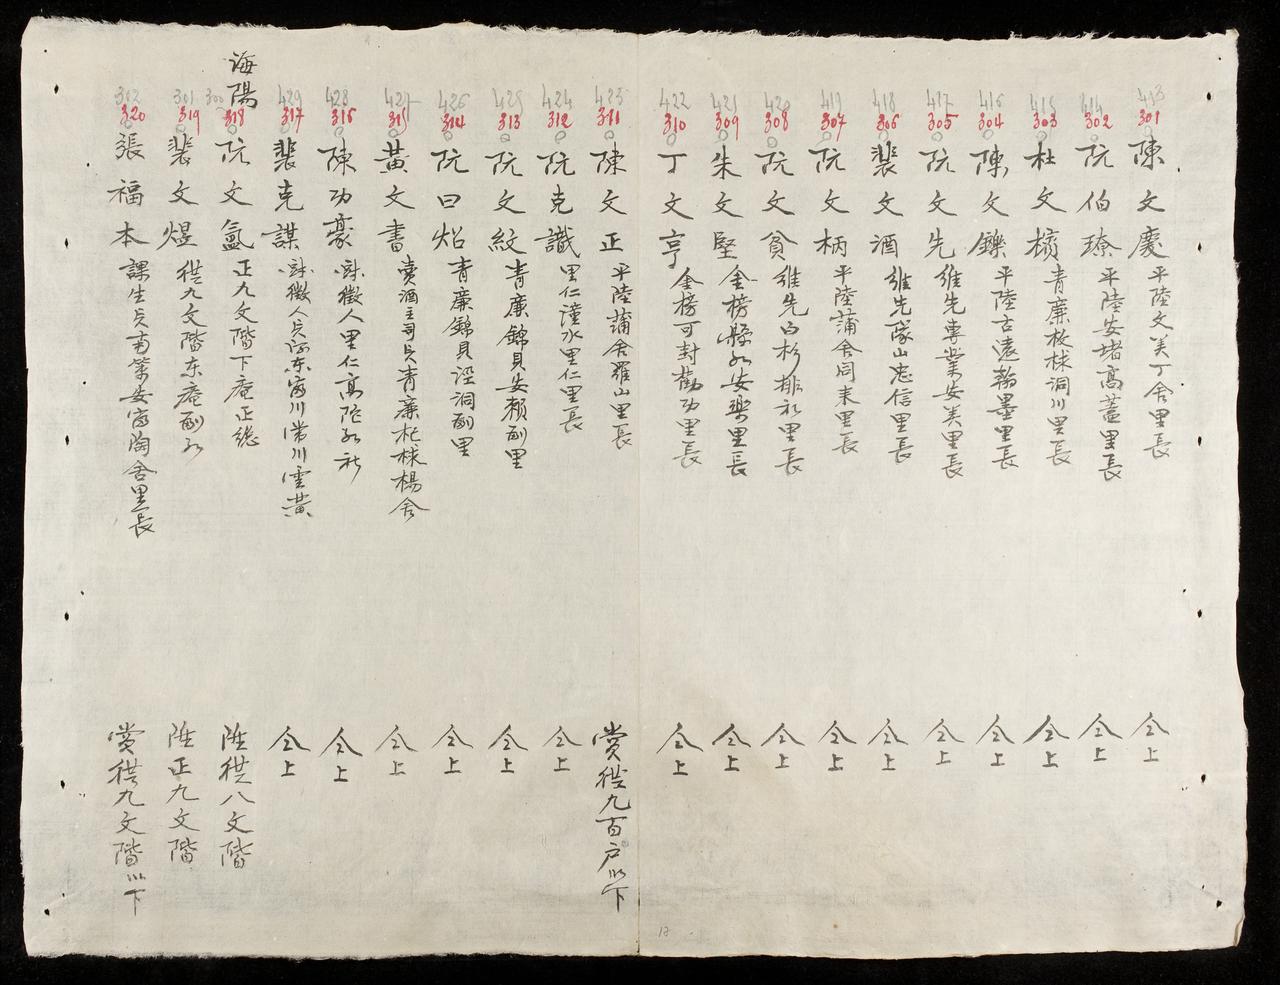 413
301
陳文慶 平陸文美丁舍里長 仝上
414
302
阮伯璙 平陸安堵高蓋里長 仝上
415
303
杜文檳 青廉枚株洞川里長 仝上
416
304
陳文鑠 平陸古遠翰墨里長 仝上
417
305
阮文先 維先專業安美里長 仝上
418
306
裴文酒 維先隊山忠信里長 仝上
419
307
阮文柄 平陸蒲舍同耒里長 仝上
420
308
阮文貧 維先白杉排礼里長 仝上
421
309
朱文堅 金榜縣水安樂里長 仝上
422
310
丁文亨 金榜可封勸功里長 仝上
423
311
陳文正 平陸蒲舍羅山里長 賞從九百戶以下
424
312
阮克識 里仁潼水里仁里長 仝上
425
313
阮文紋 青廉錦貝安賴副里 仝上
426
314
阮曰炤 青廉錦貝涇洞副里 仝上
427
315
黃文書 賣酒主司只青廉杞株楊舍 仝上
428
316
陳功豪 徵人里仁高陀水社 仝上
429
317
裴克謀 徵人兵河东富川常川雲黃 仝上
海陽
300
318
阮文氳 正九文階下庵正總 陞從八文階
301
319
裴文煜 從九文階东庵副 陞正九文階
302
320
張福本 課生兵南策安富陶舍里長 賞從九文階以下
17